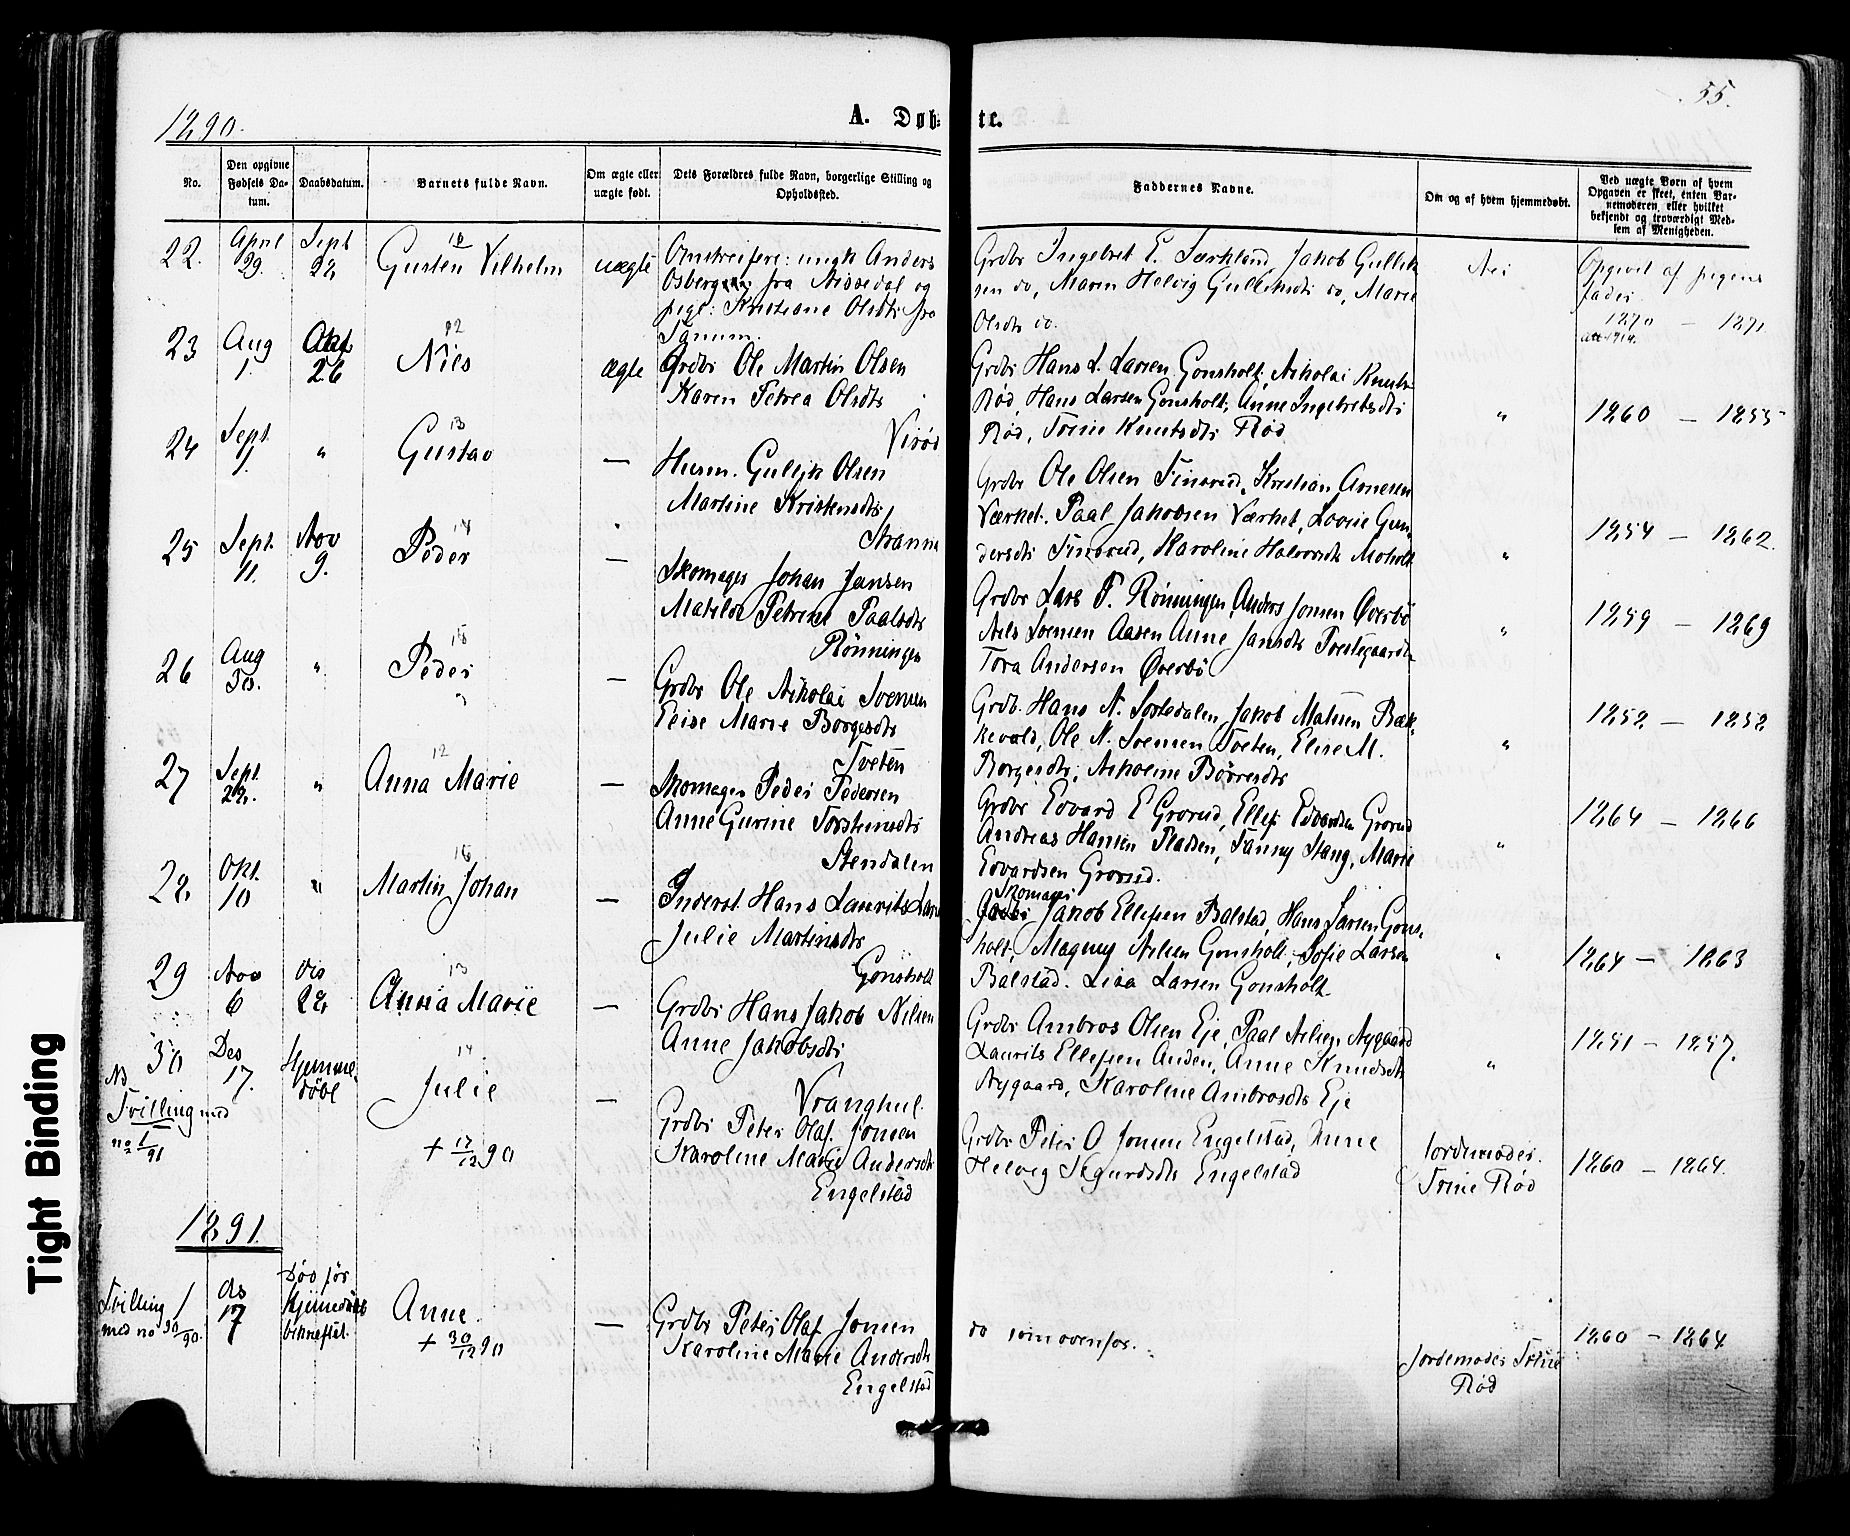 55.
1890.
A. Døb-
te.
No.
Den opgivne Fødsels Da-tum.
Daabsdatum.
Barnets fulde Navn.
Om ægte eller uægte født.
Dets Forældres fulde Navn, borgerlige Stilling og Opholdssted.
Faddernes Navne.
Om og af hvem hjemmedøbt.
Ved uægte Børn af hvem Opgaven er skeet, enten Bar-nemoderen eller hvilket bekjendt og troværdigt Med-lem af Menigheden.
22. April 29. Sept 28
Gusten Vilhelm
uægte
Omstreifere: ungk Anders
Osberg fra Nissedal og
pige: Kristiane Olsdtr fra
Sannm.
Grdbr Ingebret E. Sørkland, Jakob Gullik
sen do, Maren Helvig Gulliksdtr do, Marie
Olsdtr do.
Nei
Opgivet af pigens
fader
1870 — 1871
23 Aug 1. Okt 26
12
Nils
ægte
Grdbr Ole Martin Olsen
Karen Petrea Olsdtr
Virød
Grdbr Hans L. Larsen Gonsholt, Nikolai Knuts
Rød, Hans Larsen Gonsholt, Anne Ingebretsdtr
Rød, Trine Knutsdtr Rød
"
1860 — 1855
24 Sept. 1. "
13
Gustav
—
Husm. Gullik Olsen
Martine Kristensdtr
Stranna
Grdbr Ole Olsen Finsrud, Kristian Arnesen
Værket. Paal Jakobsen Værket, Lovise Gun-
dersdtr Finsrud, Karoline Halvorsdt Moholt
"
1854 — 1862.
25 Sept. 11. Nov 9.
14
Peder
—
Skomager Johan Jansen
Matilde Petrine Paalsdtr
Rønningen
Grdbr Lars P. Rønningen, Anders Jonsen Øverbø
Nils Svensen Aasen Anne Jansdtr Prestegaarden
Tora Andersen Øverbø
"
1859 — 1869
26 Aug 30. "
15
Peder
—
Grdbr Ole Nikolai Svensen
Elise Marie Borgesdtr
Tveten
Grdb. Hans N. Sortedalen, Jakob Matisen Bæk-
kevold, Ole N. Svensen Tveten, Elise M.
Borgesdtr, Nikoline Børresdtr
"
1852 — 1852
27 Sept. 28. "
12
Anna Marie
—
Skomager Peder Pedersen
Anne Gurine Torstensdtr
Stendalen
Grdbr Edvard E Grorud, Ellef Edvardsen Grorud
Andreas Hansen Pladsen, Fanny Stang, Marie
Edvardsen Grorud.
"
1864 — 1866
28. Okt. 10 "
16
Martin Johan
—
Inderst. Hans Laurits Lars
Julie Martinsdtr
Gonsholt
Skomager
Jakob Ellefsen Balstad, Hans Larsen Gons-
holt, Magnus Nilsen Gonsholt, Sofie Larsen
Balstad. Lisa Larsen Gonsholt
"
1864 — 1863
29 Nov 6 des 28
13
Anna Marie
—
Grdbr Hans Jakob Nilsen
Anne Jakobsdtr
Vranghul.
Grdbr Ambros Olsen Eje, Paal Nilsen Nygaard
Laurits Ellefsen Anden, Anne Knudsdtr
Nygaard, Karoline Ambrosdtr Eje
"
1851 — 1857.
30 Des 17. Hjemme-døbt
Nb
Tvilling med
no 1/91
14
Julie
+ 17/12 90
—
Grdbr Peter Olaf Jonsen
Karoline Marie Andersdtr
Engelstad
Grdbr Peter O Jonsen Engelstad, Anne
Helvig Sigurdsdtr Engelstad
Jordemoder.
Trine Rød
1860 — 1864.
1891.
Tvilling
med no 30/90.
1 des 17
Død før
Hjemmedåb
bekræftet.
Anne.
+ 30/12 90
—
Grdbr Peter Olaf Jonsen
Karoline Marie Andersdtr
Engelstad
do som ovenfor.
Jordemoder Trine
Rød
1860 — 1864.
Tight Binding